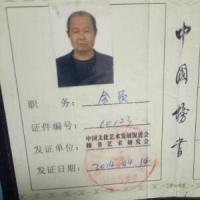 职 务：会员
证件编号：60123
发证单位：中国文化艺术发展促进会
榜书艺术研究会
发证日期：2014.04.14
中国榜书